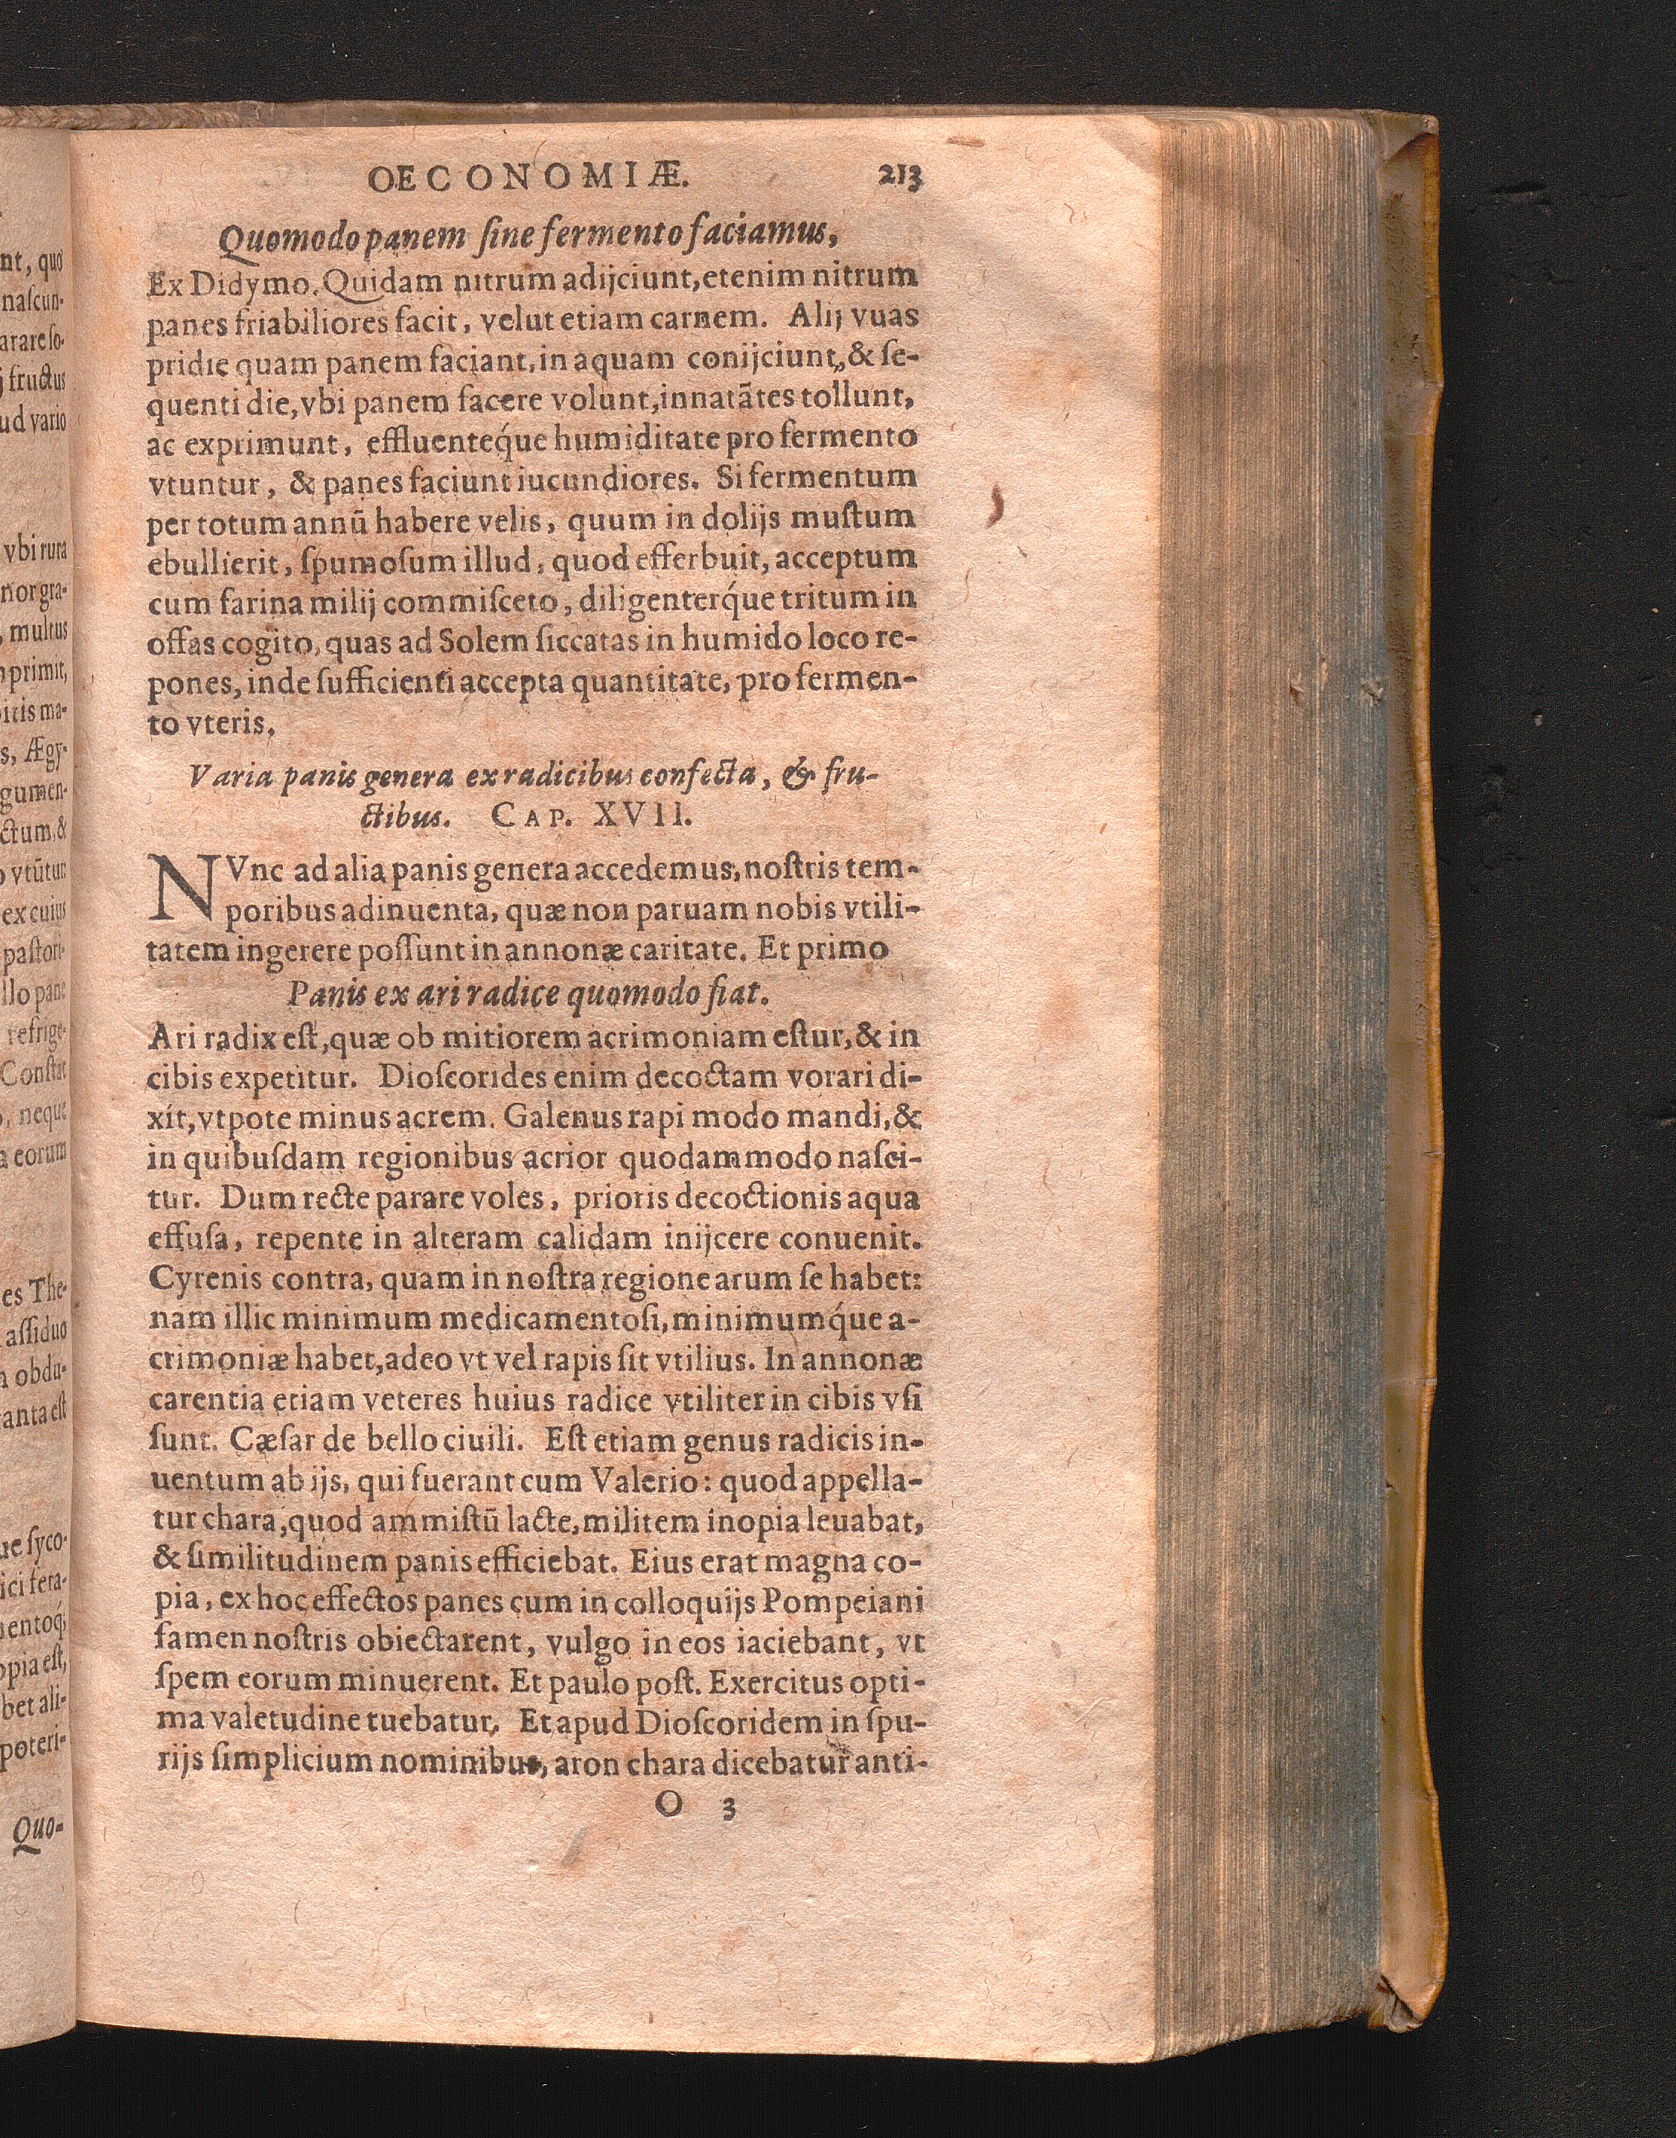 OECONOMIÆ. 213
Quomodo panem ſine fermento faciamus,
Ex Didymo. Quidam nitrum adijciunt, etenim nitrum
panes friabiliores facit, velut etiam carnem. Alij vuas
pridie quam panem faciant, in aquam conijciunt, & ſe-
quenti die, vbi panem facere volunt, innatãtes tollunt,
ac exprimunt, effluenteq́ue humiditate pro fermento
vtuntur, & panes faciunt iucundiores. Si fermentum
per totum annũ habere velis, quum in dolijs muſtum
ebullierit, ſpumoſum illud, quod efferbuit, acceptum
cum farina milij commiſceto, diligenterq́ue tritum in
offas cogito, quas ad Solem ſiccatas in humido loco re-
pones, inde ſufficienti accepta quantitate, pro fermen-
to vteris.
Varia panis genera ex radicibus confecta, & fru-
ctibus. CAP. XVII.
NVnc ad alia panis genera accedemus, noſtris tem-
poribus adinuenta, quæ non paruam nobis vtili-
tatem ingerere poſſunt in annonæ caritate. Et primo
Panis ex ari radice quomodo fiat.
Ari radix eſt, quæ ob mitiorem acrimoniam eſtur, & in
cibis expetitur. Dioſcorides enim decoctam vorari di-
xit, vtpote minus acrem. Galenus rapi modo mandi, &
in quibuſdam regionibus acrior quodammodo naſci-
tur. Dum recte parare voles, prioris decoctionis aqua
effuſa, repente in alteram calidam inijcere conuenit.
Cyrenis contra, quam in noſtra regione arum ſe habet:
nam illic minimum medicamentoſi, minimumq́ue a-
crimoniæ habet, adeo vt vel rapis ſit vtilius. In annonæ
carentia etiam veteres huius radice vtiliter in cibis vſi
ſunt. Cæſar de bello ciuili. Eſt etiam genus radicis in-
uentum ab ijs, qui fuerant cum Valerio: quod appella-
tur chara, quod ammiſtũ lacte, militem inopia leuabat,
& ſimilitudinem panis efficiebat. Eius erat magna co-
pia, ex hoc effectos panes cum in colloquijs Pompeiani
famen noſtris obiectarent, vulgo in eos iaciebant, vt
ſpem eorum minuerent. Et paulo poſt. Exercitus opti-
ma valetudine tuebatur. Et apud Dioſcoridem in ſpu-
rijs ſimplicium nominibus, aron chara dicebatur anti-
O 3
nt, quo
naſcun-
arare ſo-
fructus
ud vario
vbi rura
nor gra-
, multus
primit,
itis ma-
s, Ægy-
gumen-
ctum, &
vtũtur
ex cuius
paſtori-
llo pane
refrige-
Conſtat
, neque
eorum
es The-
aſſiduo
obdu-
tanta eſt
ue ſyco-
ici fera-
opia eſt,
bet ali-
poteri-
Quo-